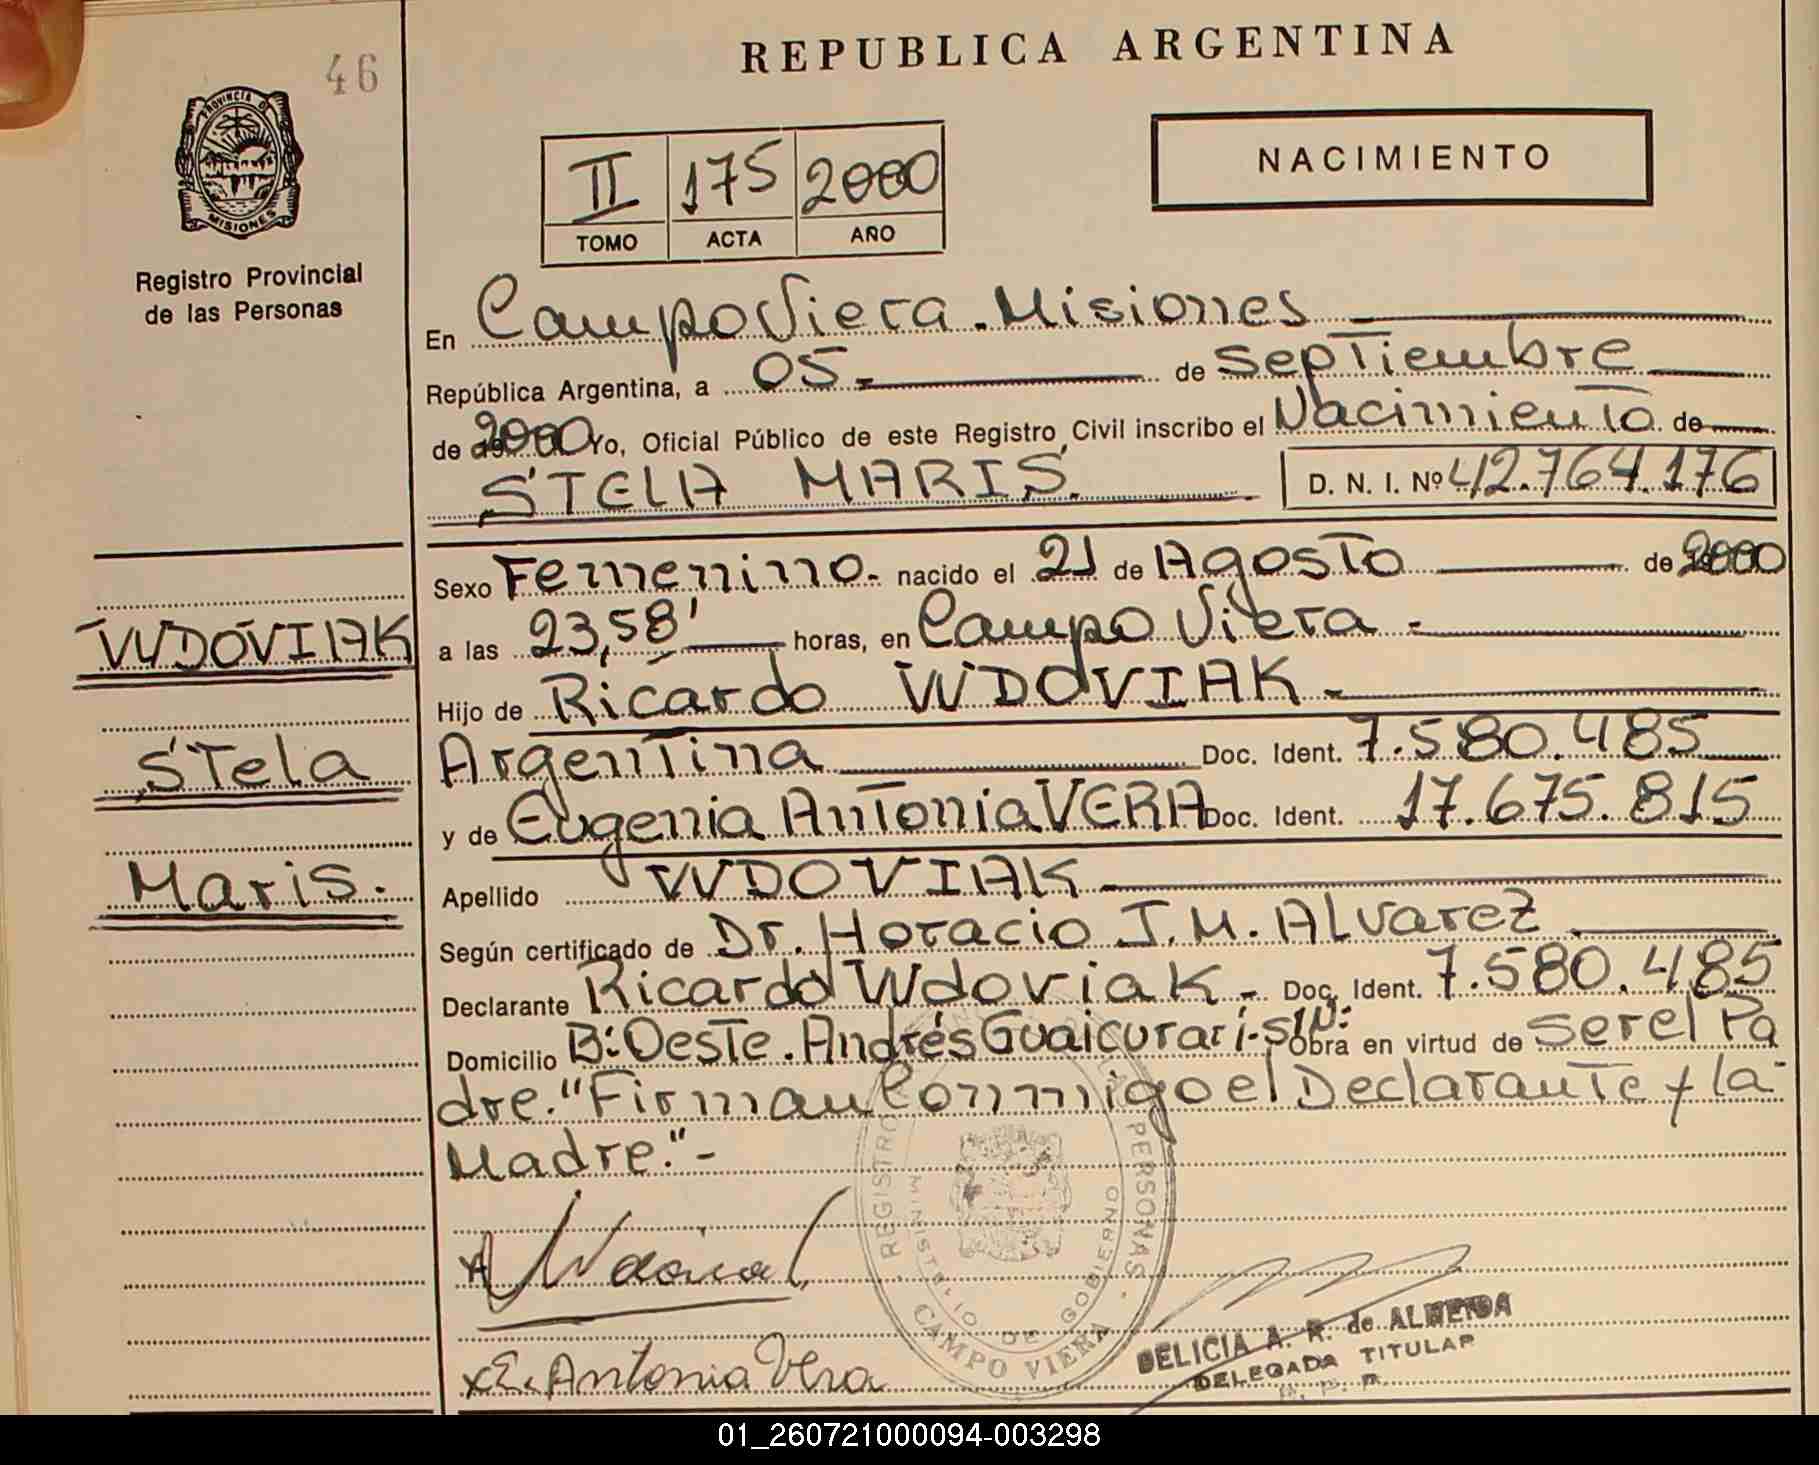 46
REPUBLICA ARGENTINA
PROVINCIA DE
MISIONES
NACIMIENTO
II 175 2000
TOMO ACTA AÑO
Registro Provincial
de las Personas
En Campo Viera - Misiones
República Argentina, a 05 - de septiembre
de 2000 Yo, Oficial Público de este Registro Civil inscribo el Nacimiento de
STELA MARIS. D. N. I. Nº 42.764.176
Sexo Femenino - nacido el 21 de Agosto de 2000
a las 23,58' horas, en Campo Viera -
Hijo de Ricardo WDOVIAK -
Argentina Doc. Ident. 7.580.485
y de Eugenia Antonia VERA Doc. Ident. 17.675.815
Apellido WDOVIAK -
Según certificado de Dr. Horacio J. M. Alvarez
Declarante Ricardo Wdoviak - Doc. Ident. 7.580.485
Domicilio Bº Oeste. Andrés Guaicurarí - S/N: Obra en virtud de ser el Pa
dre. "Firman Conmigo el Declarante y la
Madre." -
WDOVIAK
Stela
Maris.
REGISTRO PERSONAS
MINISTERIO DE GOBIERNO
CAMPO VIERA
x E. Antonia Vera
DELICIA A. R. de ALMEIDA
DELEGADA TITULAR
01_260721000094-003298